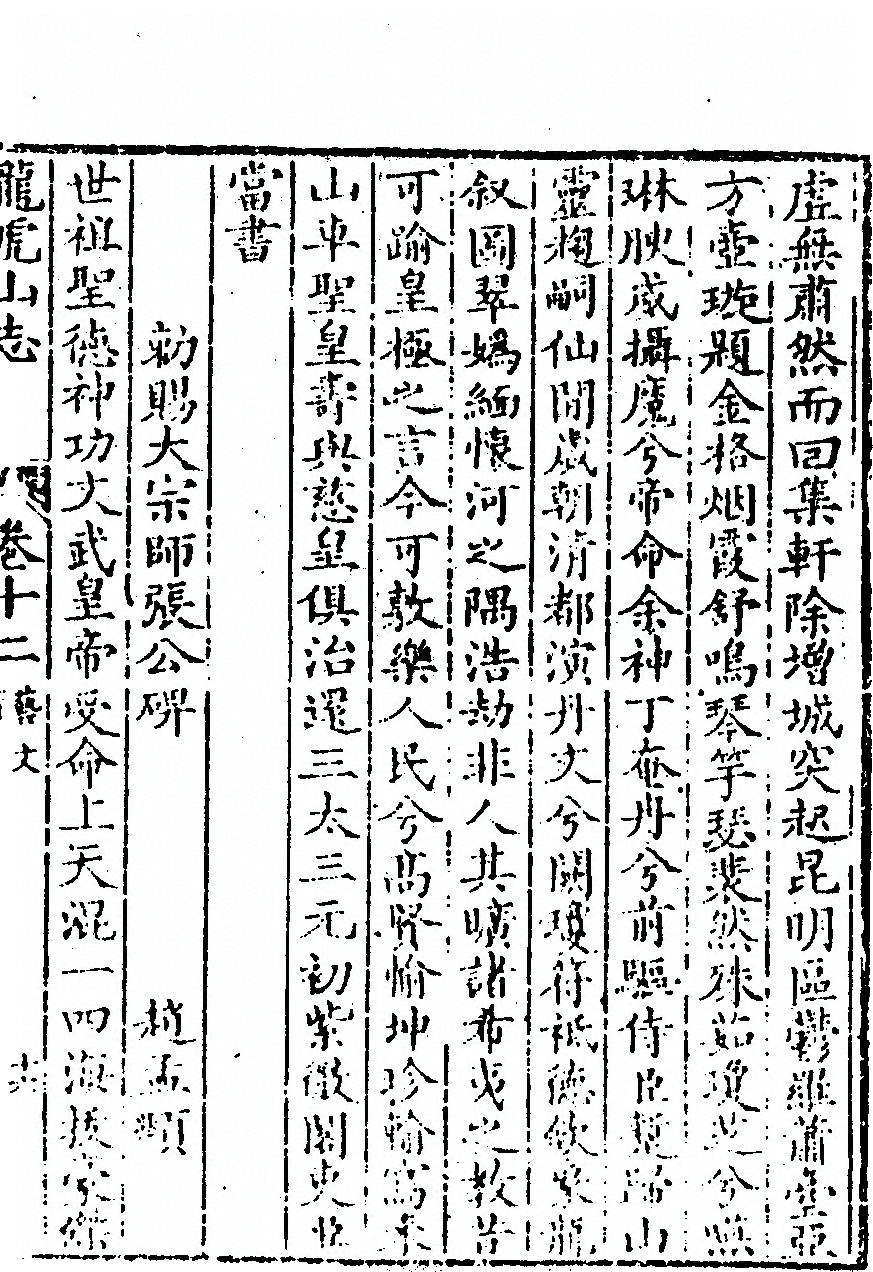 虛無肅然而回集軒除增城突起昆明區鬱羅蕭臺亞
方壺璇題金格烟霞舒鳴琴竽瑟斐然殊茹瓊芝兮嚥
琳腴威攝魔兮帝命余神丁奄丹兮前驅侍臣蹕山
靈趨嗣仙閒歲朝清都演丹文兮闢瓊符祗德欽崇龍
叙圖翠嬀緬懷河之隅浩劫非人其曠諸希夷之教昔
可踰皇極之言今可敷樂人民兮高賢愉坤珍輸
山車聖皇壽與慈皇俱治還三太三元初紫微閣吏臣
當書
勑賜大宗師張公碑 趙孟頫
世祖聖德神功文武皇帝受命上天混一四海拔
龍虎山志 卷十二 藝文